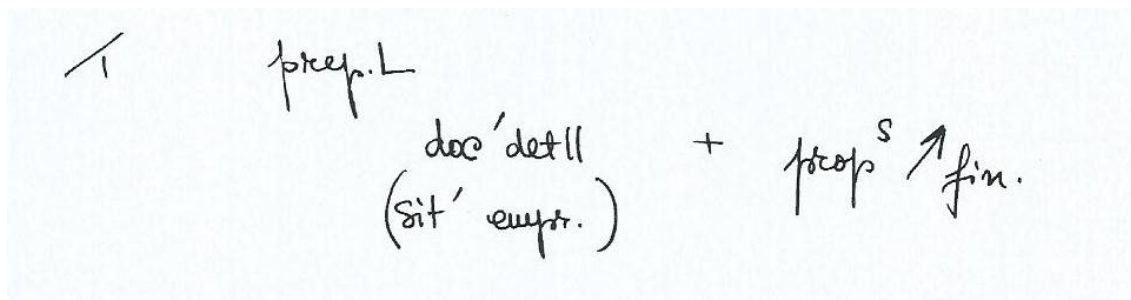 prep. L
doc' det || + prop s ↗ fin.
(sit' empr.)